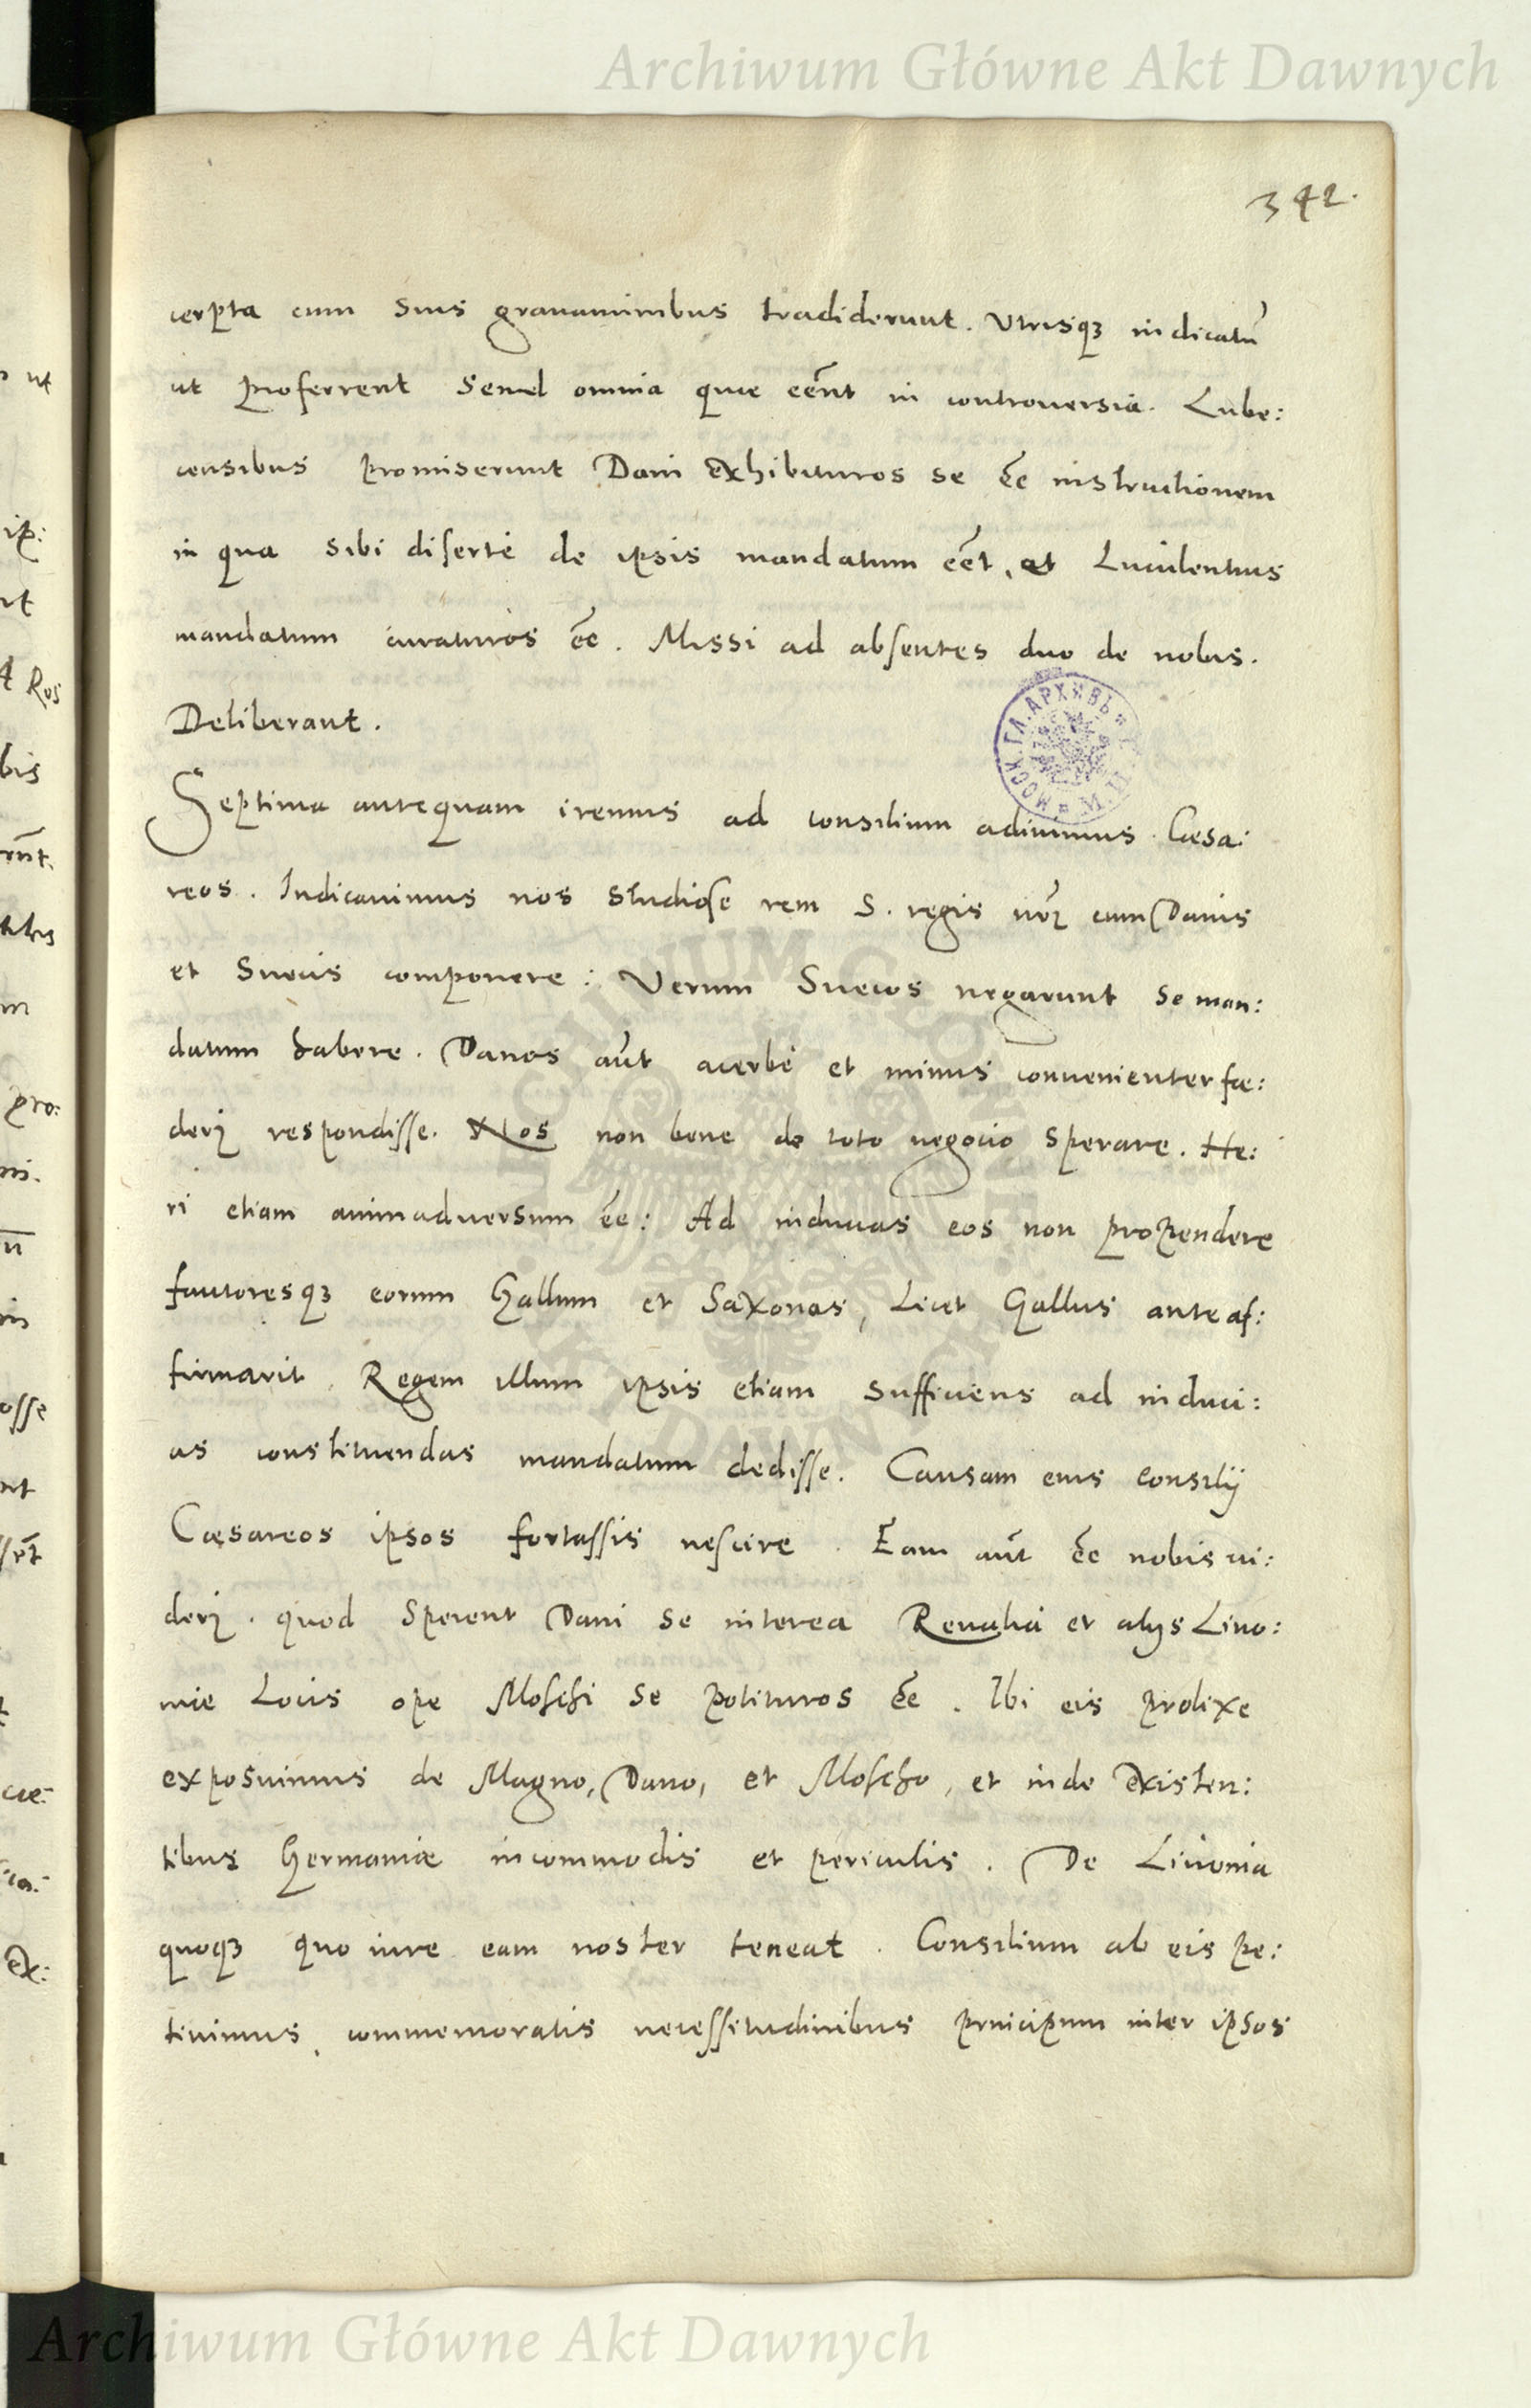 Archiwum Główne Akt Dawnych
342.
cerpta cum suis gravaminibus tradiderunt. Utrisqꝫ indicatū
ut proferrent semel omnia quae eēnt in controversia. Lube:
censibus promiserunt Dani exhibituros se ēē instructionem
in qua sibi diserte de ipsis mandatum eēt, et Luculentius
mandatum curaturos ēē. Missi ad absentes duo de nobis.
Deliberant.
Septima antequam iremus ad consilium adivimus Caesa:
reos. Indicavimus nos studiose rem S. regis nr̄i cum Danis
et Suecis componere: Verum Suecos negarunt se man:
datum habere. Danos aūt acerbe et minus convenienter fae:
deri respondisse. Nos non bene de toto negocio sperare. He:
ri etiam animadversum ēē: Ad inducias eos non propendere
fautoresqꝫ eorum Gallum et Saxonas, Licet Gallus ante af:
firmarit Regem illum ipsis etiam sufficiens ad induci:
as constituendas mandatum dedisse. Causam eius consilij
Caesareos ipsos fortassis nescire. Eam aūt ēē nobis vi:
deri. quod sperent Dani se interea Revalia et alijs Livo:
niae Locis ope Moschi se potituros ēē. Ibi eis prolixe
exposuimus de Magno, Dano, et Moscho, et inde existen:
tibus Germaniae incommodis et periculis. De Livonia
quoqꝫ quo iure eam noster teneat. Consilium ab eis pe:
tivimus, commemoratis necessitudinibus principum inter ipsos
Archiwum Główne Akt Dawnych